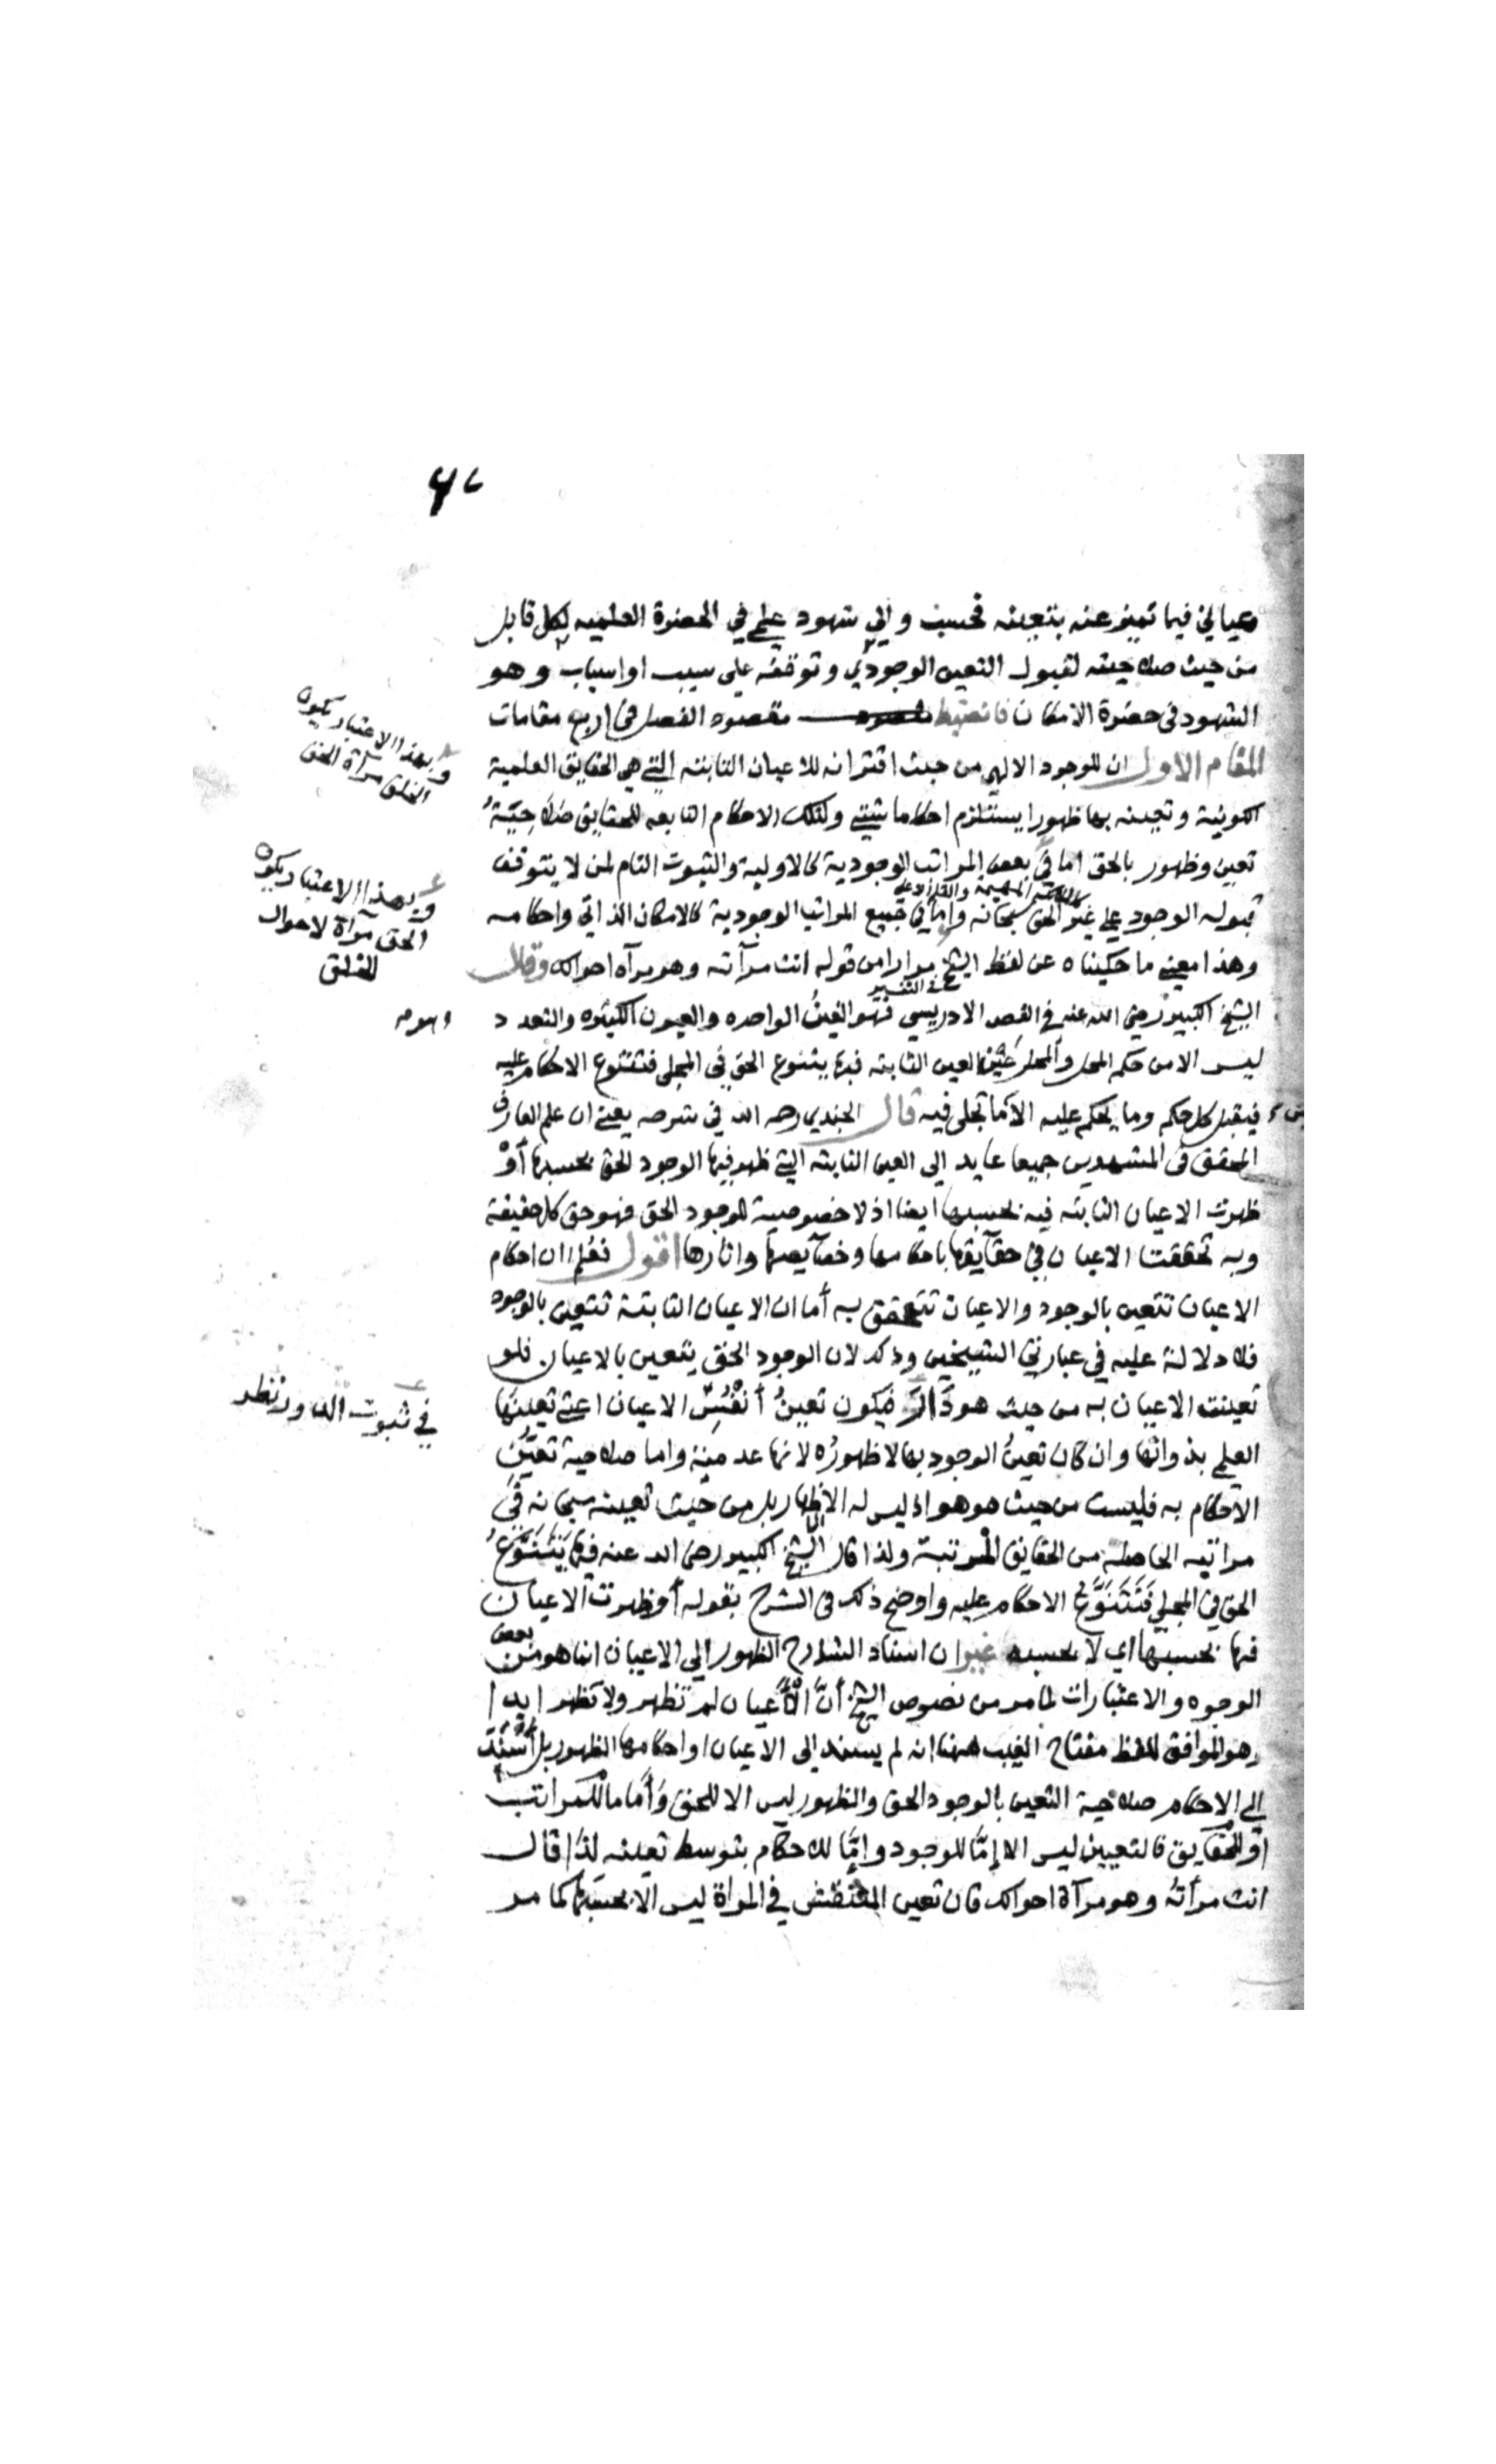 ٤٧
وعيالي فيما تميز عنه بتعينه فحسب والي شهود علمي في الحضرة العلمية لكل قابل
من حيث صلاحيته لقبول التعين الوجودي وتوقفه علي سبب او اسباب وهو
الشهود في حضرة الامكان فانضبط مقصود الفصل في اربع مقامات
المقام الاول ان للوجود الالهي من حيث اقترانه للاعيان الثابتة التي هي الحقايق العلمية
الكونية وتعينه بها ظهورا يستلزم احكاما شتي ولتلك الاحكام التابعه للحقايق صلاحية
تعين وظهور بالحق اما في بعض المراتب الوجودية كالاولية والثبوت التام لمن لا يتوقف
قبوله الوجود علي غير الحق سبحانه واما في جميع المراتب الوجودية كالامكان الذاتي واحكامه
وهذا معني ما حكيناه عن لفظ الشيخ مرارا من قوله انت مرآته وهو مرآة احوالك وقال
الشيخ الكبير رضي الله عنه في الفص الادريسي فهو العين الواحده والعيون الكثيره والتعدد
ليس الا من حكم المحل والمحل عين العين الثابته فبها يتنوع الحق في المجلي فتتنوع الاحكام عليه
فيقبل كل حكم وما يحكم عليه الا ما تجلي فيه قال الجندي رحمه الله في شرحه يعني ان علم العارف
المحقق في المشهدين جميعا عايد الي العين الثابته التي ظهر فيها الوجود الحق بحسبها أو
ظهرت الاعيان الثابته فيه بحسبها ايضا اذ لا خصوصية للوجود الحق فهو حق كل حقيقة
وبه تحققت الاعيان في حقايقها باحكامها وخصايصها واثارها اقول فعلم ان احكام
الاعيان تتعين بالوجود والاعيان تتحقق به أما ان الاعيان الثابتة تتعين بالوجود
فلا دلالة عليه في عبارتي الشيخين وذلك لان الوجود الحق يتعين بالاعيان فلو
تعينت الاعيان به من حيث هو دار فيكون تعين أنفس الاعيان اعني تعينها
العلمي بذواتها وان كان تعين الوجود بها لا ظهوره لانها عدمية واما صلاحية تعين
الاحكام به فليست من حيث هو هو اذ ليس له الا الاظهار بل من حيث تعينه سبحانه في
مراتبه الحاصلة من الحقايق المرتبة ولذا قال الشيخ الكبير رضي الله عنه فبها يتنوع
الحق في المجلي فتتنوع الاحكام عليه واوضح ذلك في الشرح بقوله أو ظهرت الاعيان
فيها بحسبها اي لا بحسبه غير ان اسناد الشارح الظهور الي الاعيان انما هو من بعض
الوجوه والاعتبارات لما مر من نصوص الشيخ أن الاعيان لم تظهر ولا تظهر ابدا
وهو الموافق للفظ مفتاح الغيب ههنا انه لم يسند الي الاعيان او احكامها الظهور بل أسند
الي الاحكام صلاحية التعين بالوجود الحق والظهور ليس الا للحق وأما ما للمراتب
او للحقايق فالتعيين ليس الا إما للوجود وإما للاحكام بتوسط تعينه لذا قال
انت مرآته وهو مرآة احوالك فان تعين المنتقش في المرآة ليس الا بحسبها كما مر
وبهذا الاعتبار يكون
الخلق مرآة الحق
وبهذا الاعتبار يكون
الحق مرآة لاحوال
الخلق
في ثبوت الدور نظر